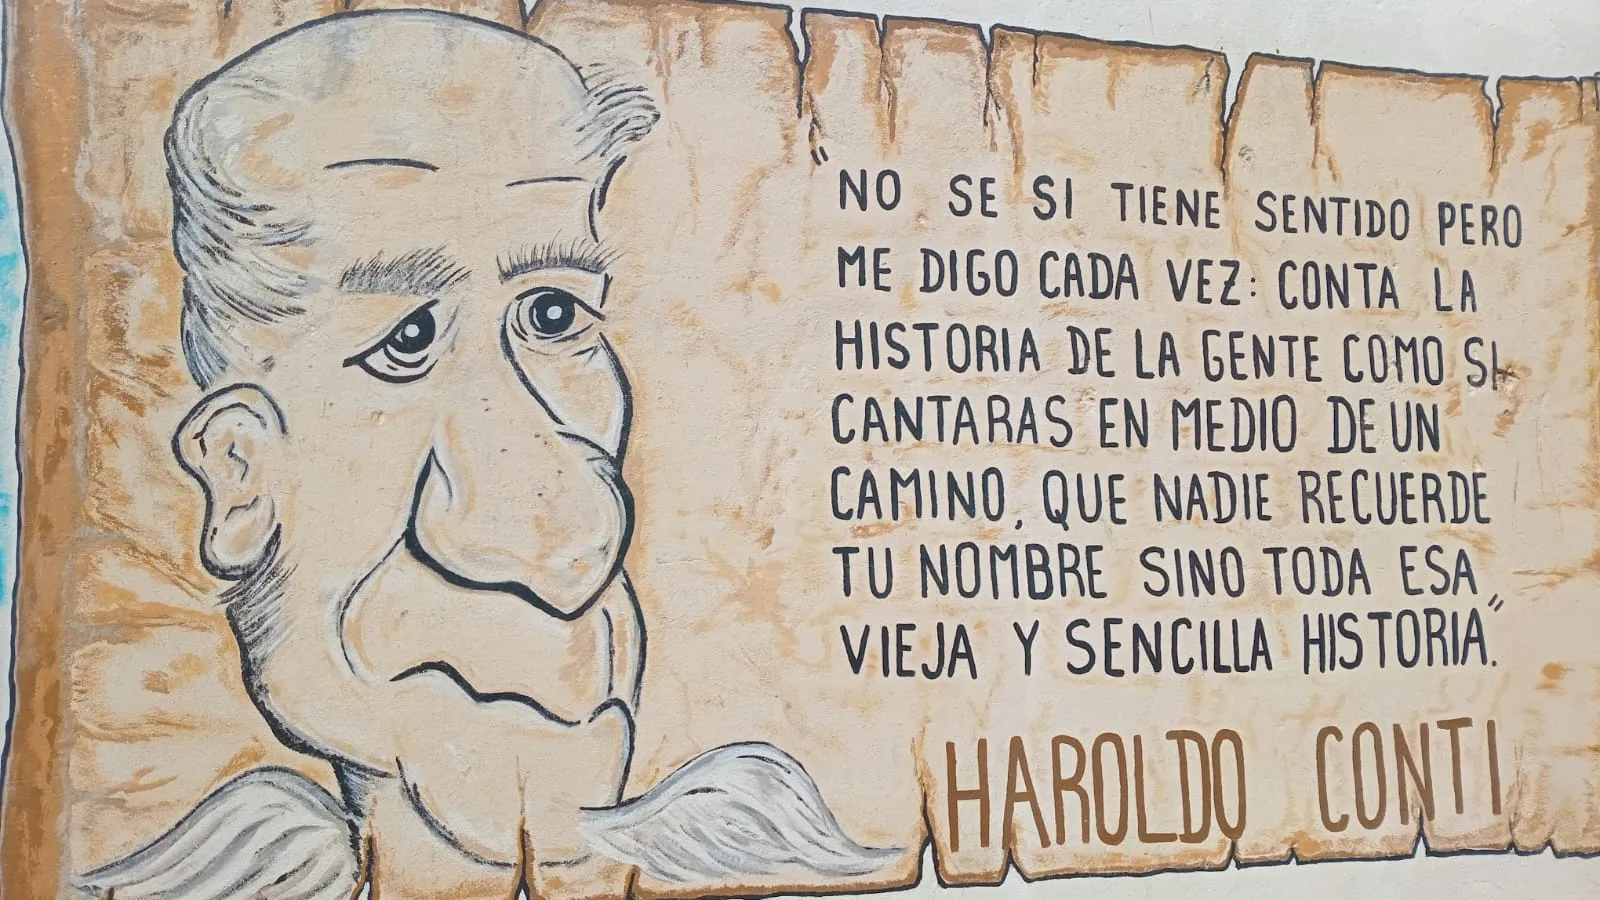 "NO SE SI TIENE SENTIDO PERO
ME DIGO CADA VEZ: CONTA LA
HISTORIA DE LA GENTE COMO SI
CANTARAS EN MEDIO DE UN
CAMINO, QUE NADIE RECUERDE
TU NOMBRE SINO TODA ESA
VIEJA Y SENCILLA HISTORIA."
HAROLDO CONTI